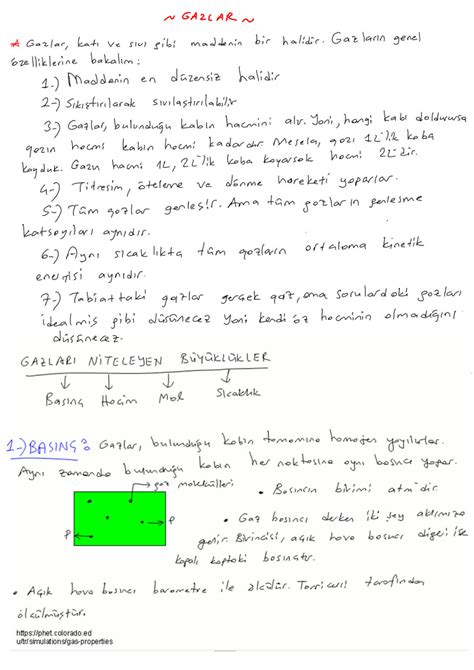 ~ GAZLAR ~
* Gazlar, katı ve sıvı gibi maddenin bir halidir. Gazların genel
özelliklerine bakalım:
1-) Maddenin en düzensiz halidir
2-) Sıkıştırılarak sıvılaştırılabilir
3-) Gazlar, bulunduğu kabın hacmini alır. Yani, hangi kabı doldurursa
gazın hacmi kabın hacmi kadardır. Mesela, gazı 1L'lik kaba
koyduk. Gazın hacmi 1L, 2L'lik kaba koyarsak hacmi 2L'dir.
4-) Titreşim, öteleme ve dönme hareketi yaparlar.
5-) Tüm gazlar genleşir. Ama tüm gazların genleşme
katsayıları aynıdır.
6-) Aynı sıcaklıkta tüm gazların ortalama kinetik
enerjisi aynıdır.
7-) Tabiattaki gazlar gerçek gaz, ama sorulardaki gazları
idealmiş gibi düşünecez yani kendi öz hacminin olmadığını
düşünecez.
GAZLARI NİTELEYEN BÜYÜKLÜKLER
Basınç Hacim Mol Sıcaklık
1-) BASINÇ: Gazlar, bulunduğu kabın tamamına homojen yayılırlar.
Aynı zamanda bulunduğu kabın her noktasına aynı basıncı yapar.
gaz molekülleri
• Basıncın birimi atm'dir.
P
P
• Gaz basıncı derken iki şey aklımıza
gelir. Birincisi, açık hava basıncı diğeri ise
kapalı kaptaki basınçtır.
• Açık hava basıncı barometre ile ölçülür. Torricelli tarafından
ölçülmüştür.
https://phet.colorado.ed
u/tr/simulations/gas-properties